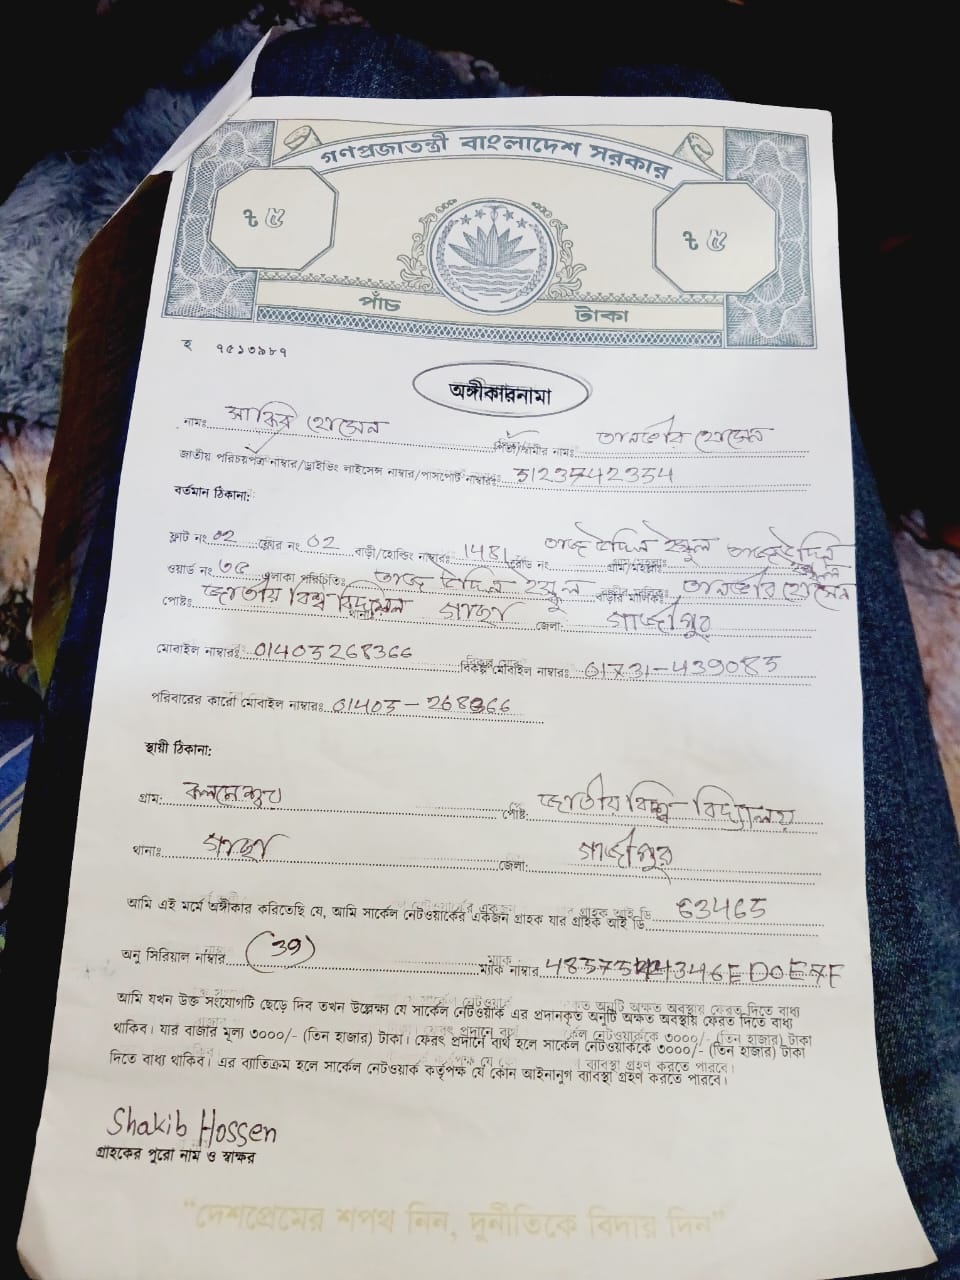 গণপ্রজাতন্ত্রী বাংলাদেশ সরকার
৳ ৫
৳ ৫
পাঁচ টাকা
হ ৭৫১৩৯৮৭
অঙ্গীকারনামা
নামঃ সাকিব হোসেন পিতা/স্বামীর নামঃ তানভীর হোসেন
জাতীয় পরিচয়পত্র নাম্বার/ড্রাইভিং লাইসেন্স নাম্বার/পাসপোর্ট নাম্বারঃ 5123542354
বর্তমান ঠিকানা:
ফ্লাট নং 02 ফ্লোর নং 02 বাড়ী/হোল্ডিং নাম্বারঃ 1481 রোড নং গ্রাম/মহল্লা
ওয়ার্ড নং ৩৫ এলাকা পরিচিতি: বাড়ীর মালিক: তানভীর হোসেন
পোষ্টঃ জাতীয় বিশ্ব বিদ্যালয় থানা গাছা জেলা: গাজীপুর
মোবাইল নাম্বারঃ 01405268366 বিকল্প মোবাইল নাম্বারঃ 01731-439085
পরিবারের কারো মোবাইল নাম্বারঃ 01405-268366
স্থায়ী ঠিকানা:
গ্রাম: কলমেশ্বর পোষ্ট: জাতীয় বিশ্ব বিদ্যালয়
থানাঃ গাছা জেলা: গাজীপুর
আমি এই মর্মে অঙ্গীকার করিতেছি যে, আমি সার্কেল নেটওয়ার্কের একজন গ্রাহক যার গ্রাহক আই ডি 63465
অনু সিরিয়াল নাম্বার (39) ম্যাক নাম্বার
আমি যখন উক্ত সংযোগটি ছেড়ে দিব তখন উল্লেক্ষ্য যে সার্কেল নেটওয়ার্ক এর প্রদানকৃত অনুটি অক্ষত অবস্থায় ফেরত দিতে বাধ্য
থাকিব। যার বাজার মূল্য ৩০০০/- (তিন হাজার) টাকা। ফেরৎ প্রদানে ব্যর্থ হলে সার্কেল নেটওয়ার্ককে ৩০০০/- (তিন হাজার) টাকা
দিতে বাধ্য থাকিব। এর ব্যাতিক্রম হলে সার্কেল নেটওয়ার্ক কর্তৃপক্ষ যে কোন আইনানুগ ব্যাবস্থা গ্রহণ করতে পারবে।
Shakib Hossen
গ্রাহকের পুরো নাম ও স্বাক্ষর
"দেশপ্রেমের শপথ নিন, দুর্নীতিকে বিদায় দিন"